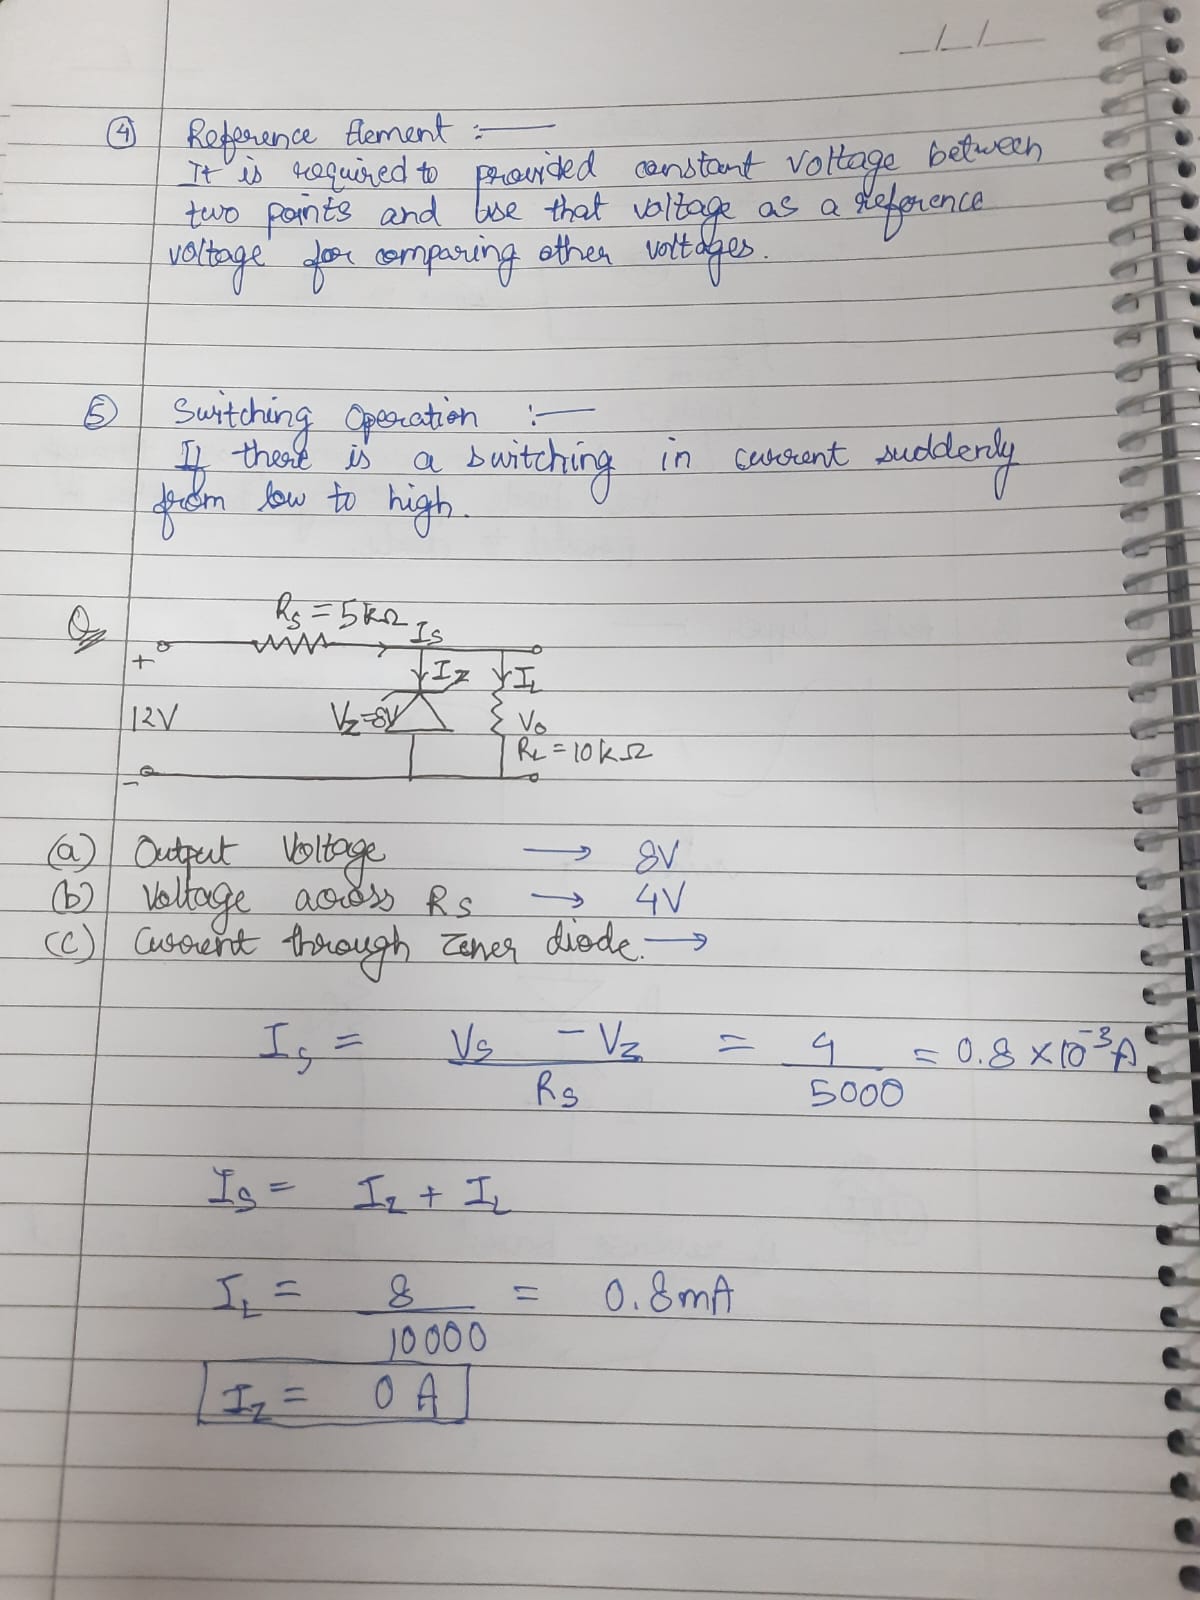 _/_/__
④ Reference Element :—
It is required to provided constant voltage between
two points and use that voltage as a reference
voltage for comparing other voltages.
⑤ Switching Operation :—
If there is a switching in current suddenly
from low to high.
Q
RS = 5kΩ
IS
+
IZ
IL
12V
VZ=8V
V0
RL = 10kΩ
-
(a) Output Voltage → 8V
(b) Voltage across RS → 4V
(c) Current through zener diode. →
IS = VS - VZ / RS = 4 / 5000 = 0.8 × 10⁻³ A
IS = IZ + IL
IL = 8 / 10000 = 0.8mA
IZ = 0 A